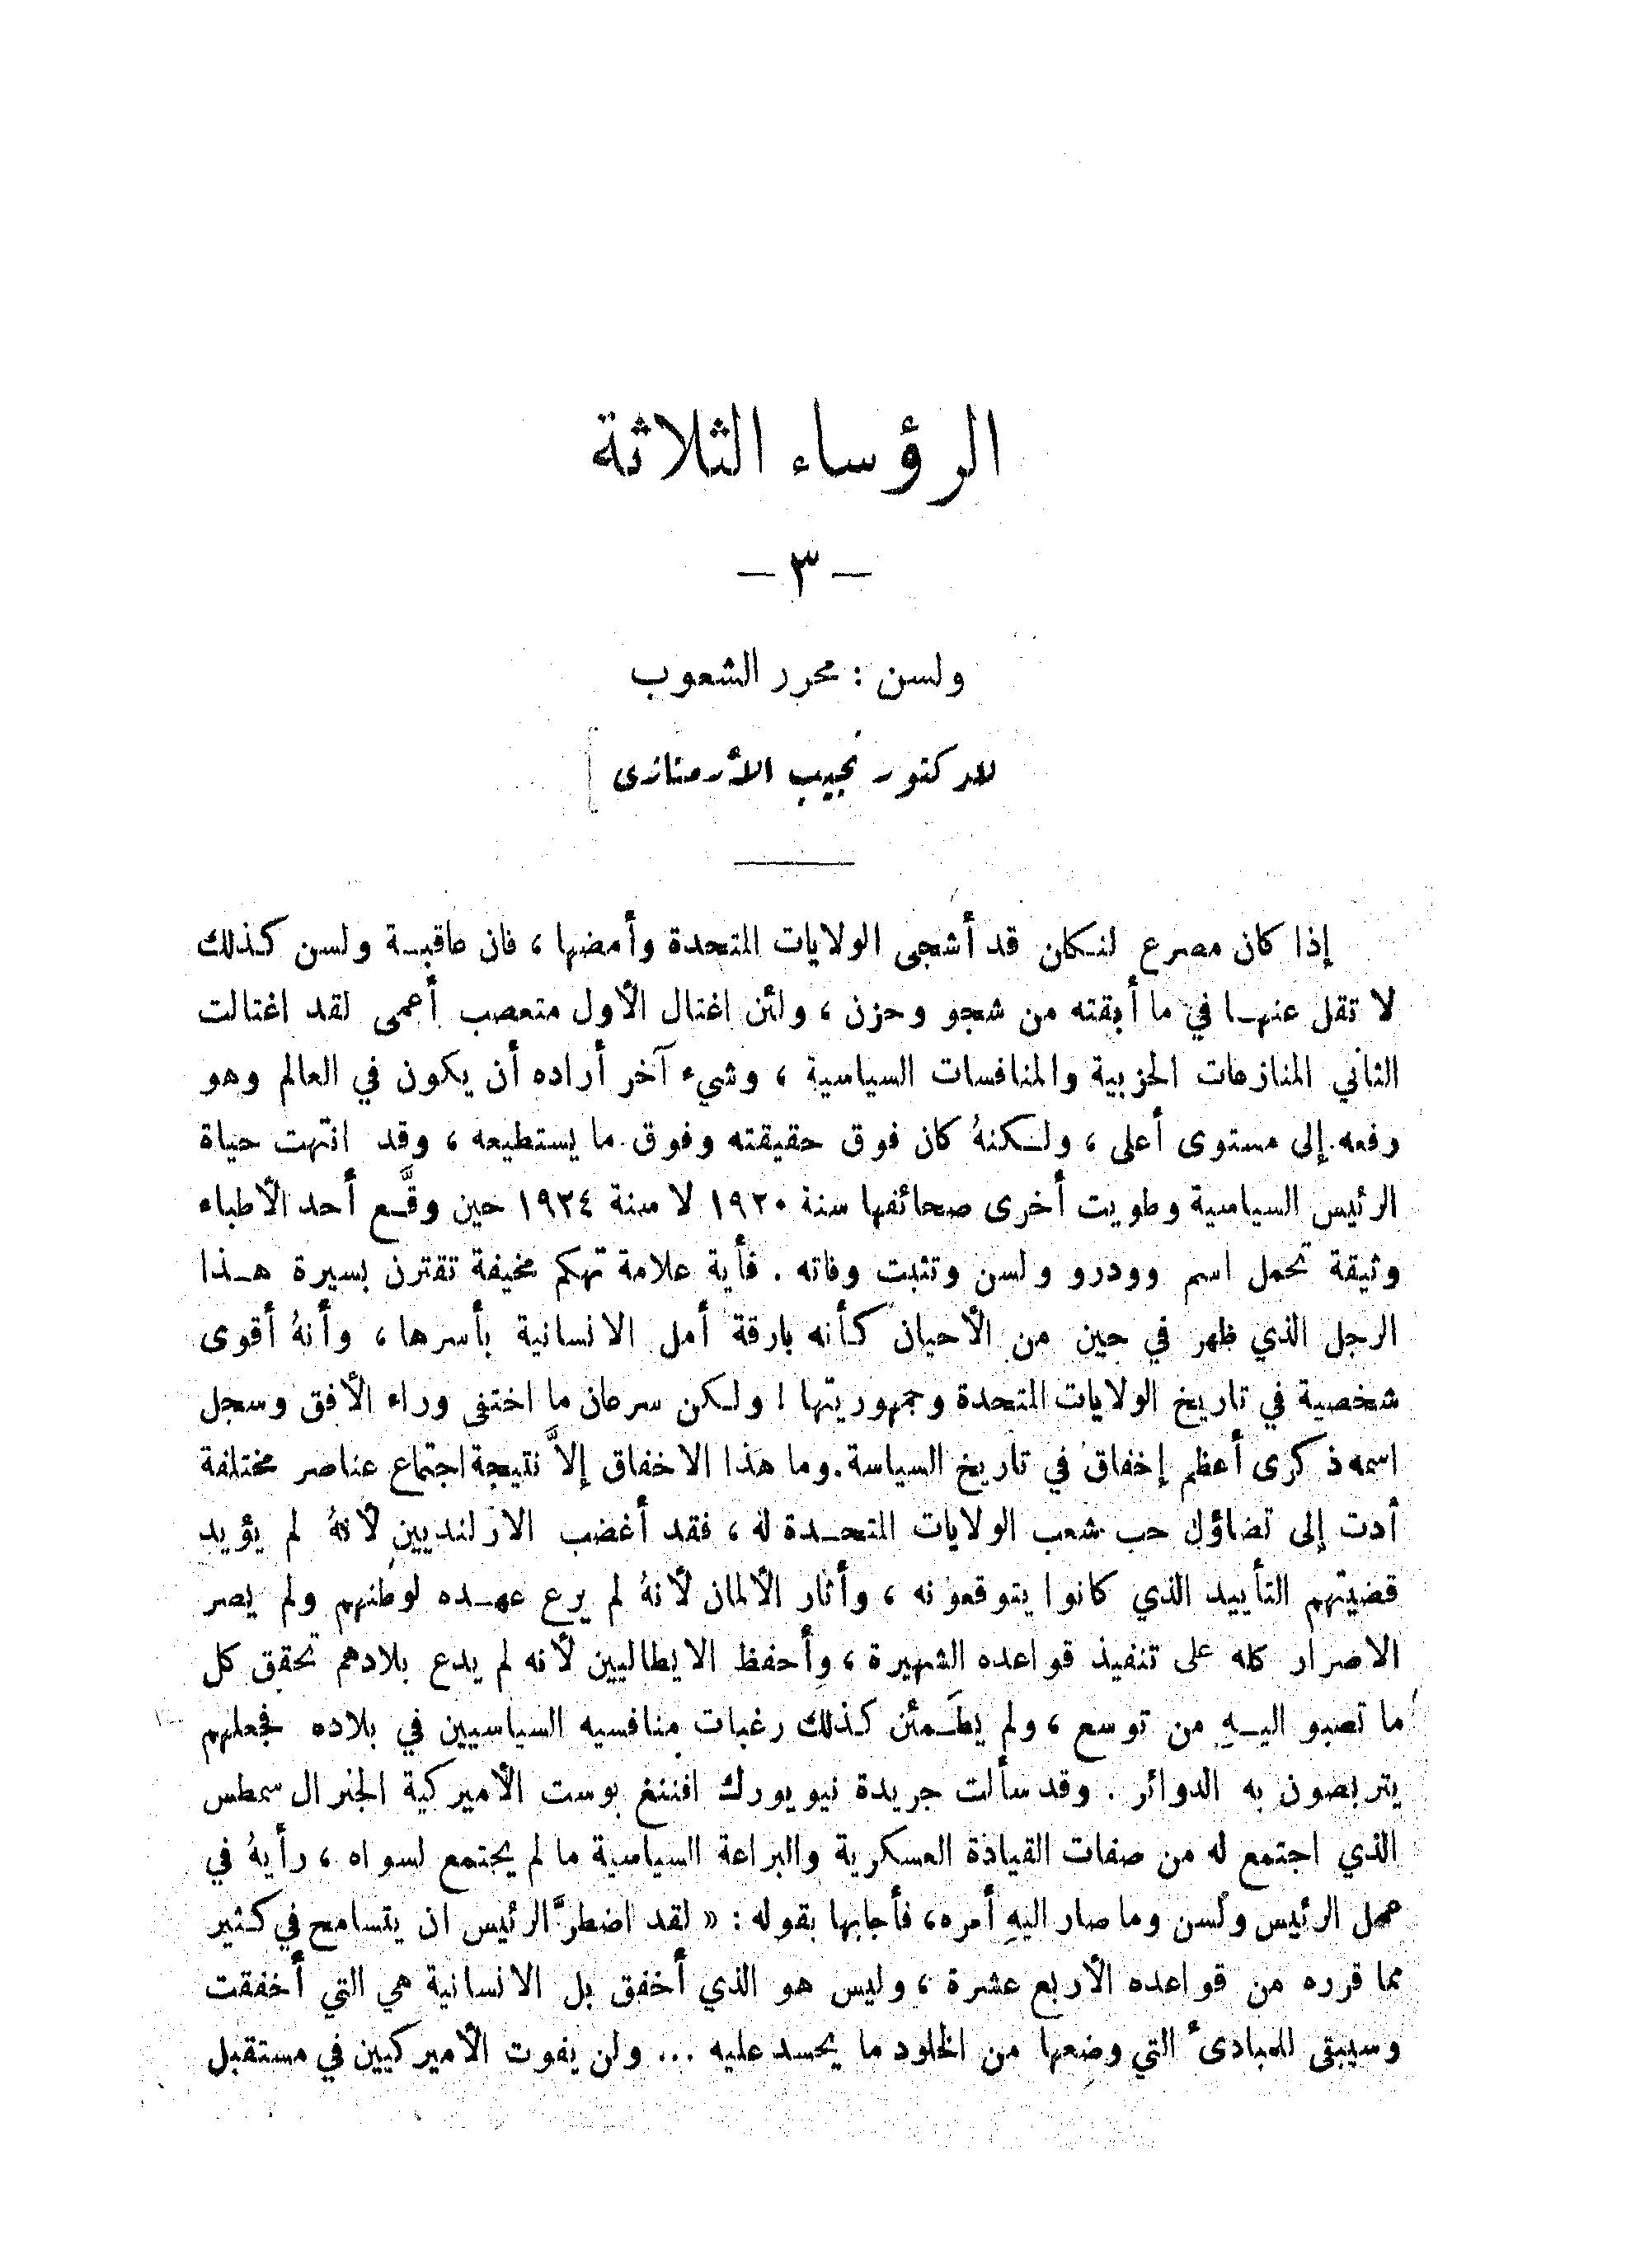 الرؤساء الثلاثة
— ٣ —
ولسن : محرر الشعوب
للدكتور نجيب الأرمنازى
إذا كان مصرع لنكلن قد أشجى الولايات المتحدة وأمضها ، فان عاقبة ولسن كذلك
لا تقل عنها في ما أبقته من شجو وحزن ، ولئن اغتال الأول متعصب أعمى لقد اغتالت
الثاني المنازعات الحزبية والمنافسات السياسية ، وشيء آخر أراده أن يكون في العالم وهو
رفعه إلى مستوى أعلى ، ولكنهُ كان فوق حقيقته وفوق ما يستطيعه ، وقد انتهت حياة
الرئيس السياسية وطويت أخرى صحائفها سنة ١٩٢٠ لا سنة ١٩٢٤ حين وقَّع أحد الأطباء
وثيقة تحمل اسم وودرو ولسن وتثبت وفاته . فأية علامة تهكم مخيفة تقترن بسيرة هذا
الرجل الذي ظهر في حين من الأحيان كأنه بارقة أمل الانسانية بأسرها ، وأنهُ أقوى
شخصية في تاريخ الولايات المتحدة وجمهوريتها ! ولكن سرعان ما اختفى وراء الأفق وسجل
اسمه ذكرى أعظم إخفاق في تاريخ السياسة . وما هذا الاخفاق إلاَّ نتيجة اجتماع عناصر مختلفة
أدت إلى تضاؤل حب شعب الولايات المتحدة له ، فقد أغضب الارلنديين لأنهُ لم يؤيد
قضيتهم التأييد الذي كانوا يتوقعونه ، وأثار الألمان لأنهُ لم يرع عهده لوطنهم ولم يصر
الاضرار كله على تنفيذ قواعده الشهيرة ، وأحفظ الايطاليين لأنه لم يدع بلادهم تحقق كل
ما تصبو اليهِ من توسع ، ولم يطَمئن كذلك رغبات منافسيه السياسيين في بلاده فجعلهم
يتربصون به الدوائر . وقد سألت جريدة نيويورك افننغ بوست الأميركية الجنرال سمطس
الذي اجتمع له من صفات القيادة العسكرية والبراعة السياسية ما لم يجتمع لسواه ، رأيهُ في
عمل الرئيس ولسن وما صار اليهِ أمره، فأجابها بقوله : « لقد اضطرَّ الرئيس ان يتسامح في كثير
مما قرره من قواعده الأربع عشرة ، وليس هو الذي أخفق بل الانسانية هي التي أخفقت
وسيبقى للمبادىء التي وضعها من الخلود ما يحسد عليه ... ولن يفوت الأميركيين في مستقبل